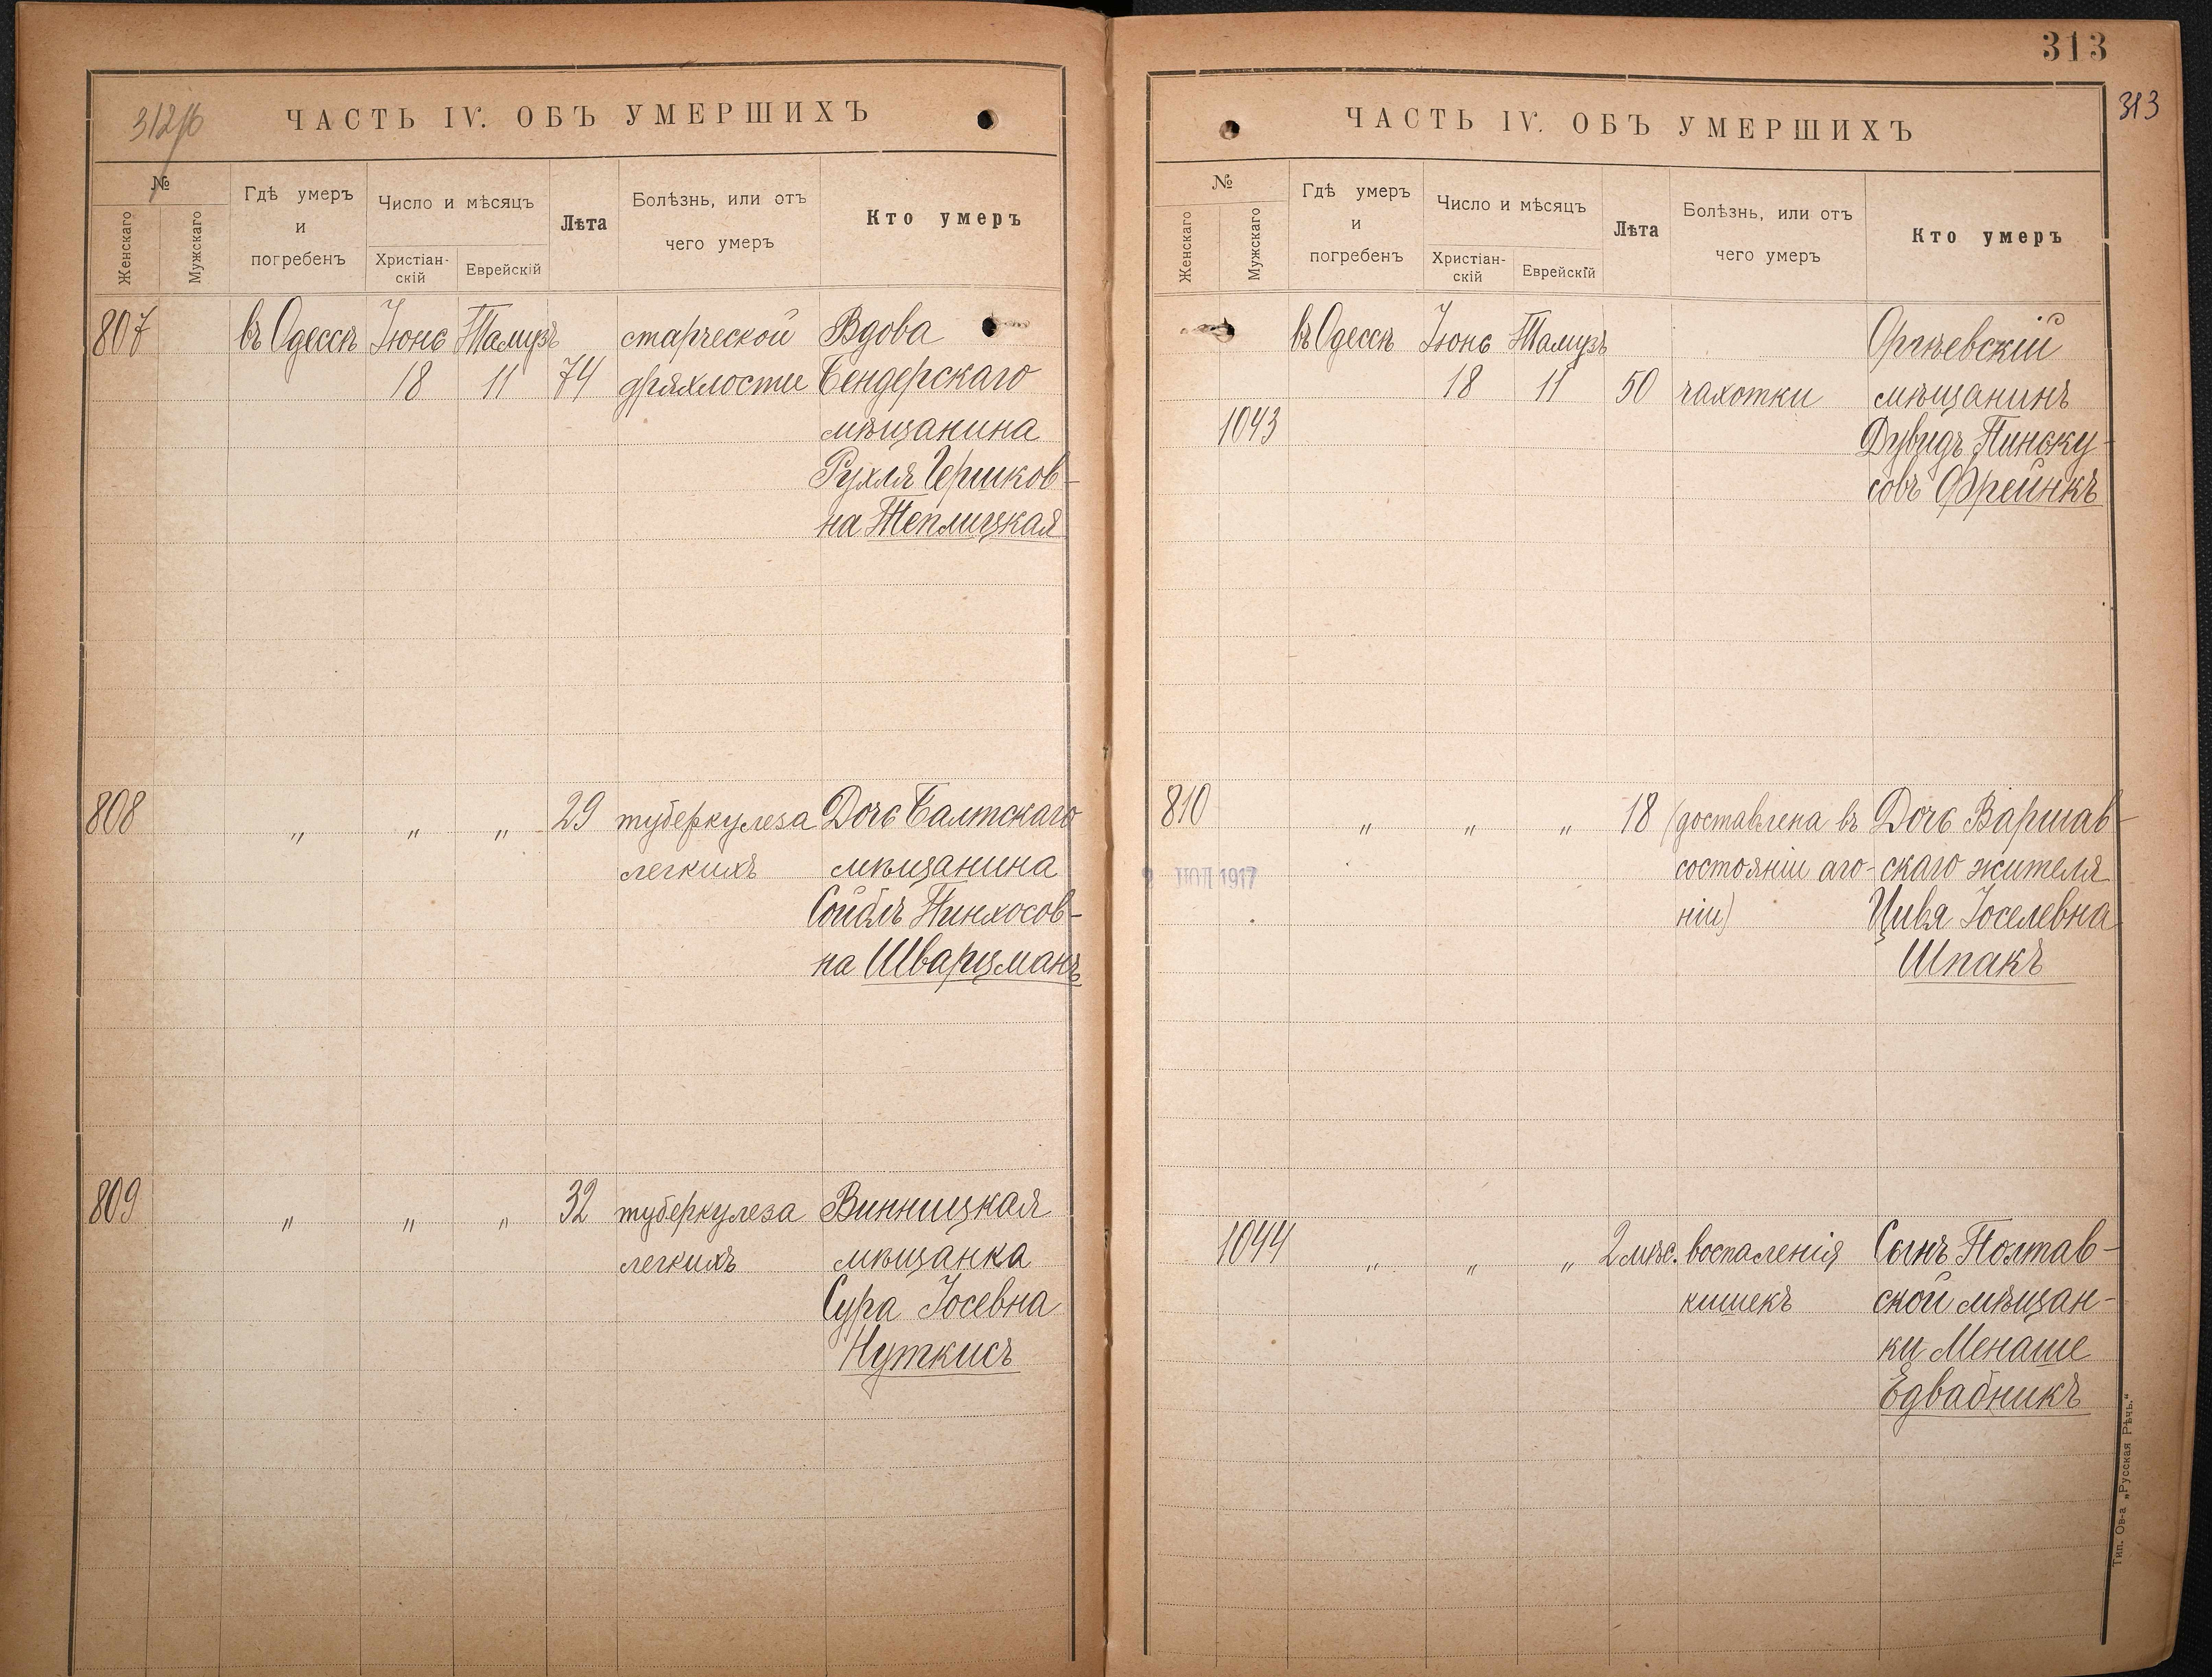 312об
ЧАСТЬ IV. ОБЪ УМЕРШИХЪ
№
Женскаго
Мужскаго
Гдѣ умеръ
и
погребенъ
Число и мѣсяцъ
Христіан-
скій
Еврейскій
Лѣта
Болѣзнь, или отъ
чего умеръ
Кто умеръ
807 въ Одессѣ Іюнь Тамузъ старческой Вдова
18 11 74 дряхлости Бендерскаго
мѣщанина
Рухля Гершков-
на Теплицкая
808 " " " 29 туберкулеза Дочь Балтскаго
легкихъ мѣщанина
Сойбль Пинхосов-
на Шварцманъ
809 " " " 32 туберкулеза Винницкая
легкихъ мѣщанка
Сура Іосевна
Нуткисъ
313
313
ЧАСТЬ IV. ОБЪ УМЕРШИХЪ
№
Женскаго
Мужскаго
Гдѣ умеръ
и
погребенъ
Число и мѣсяцъ
Христіан-
скій
Еврейскій
Лѣта
Болѣзнь, или отъ
чего умеръ
Кто умеръ
въ Одессѣ Іюнь Тамузъ Оргѣевскій
18 11 50 чахотки мѣщанинъ
1043 Дувидъ Пинску-
совъ Фрейнкъ
810 " " " 18 (доставлена въ Дочь Варшав-
состояніи аго- скаго жителя
ніи) Цивя Іоселевна
Шпакъ
1917
1044 " " " 2 мѣс. воспаленія Сынъ Полтав-
кишекъ ской мѣщан-
ки Менаше
Едвабникъ
Тип. Ов-а „Русская Рѣчь."